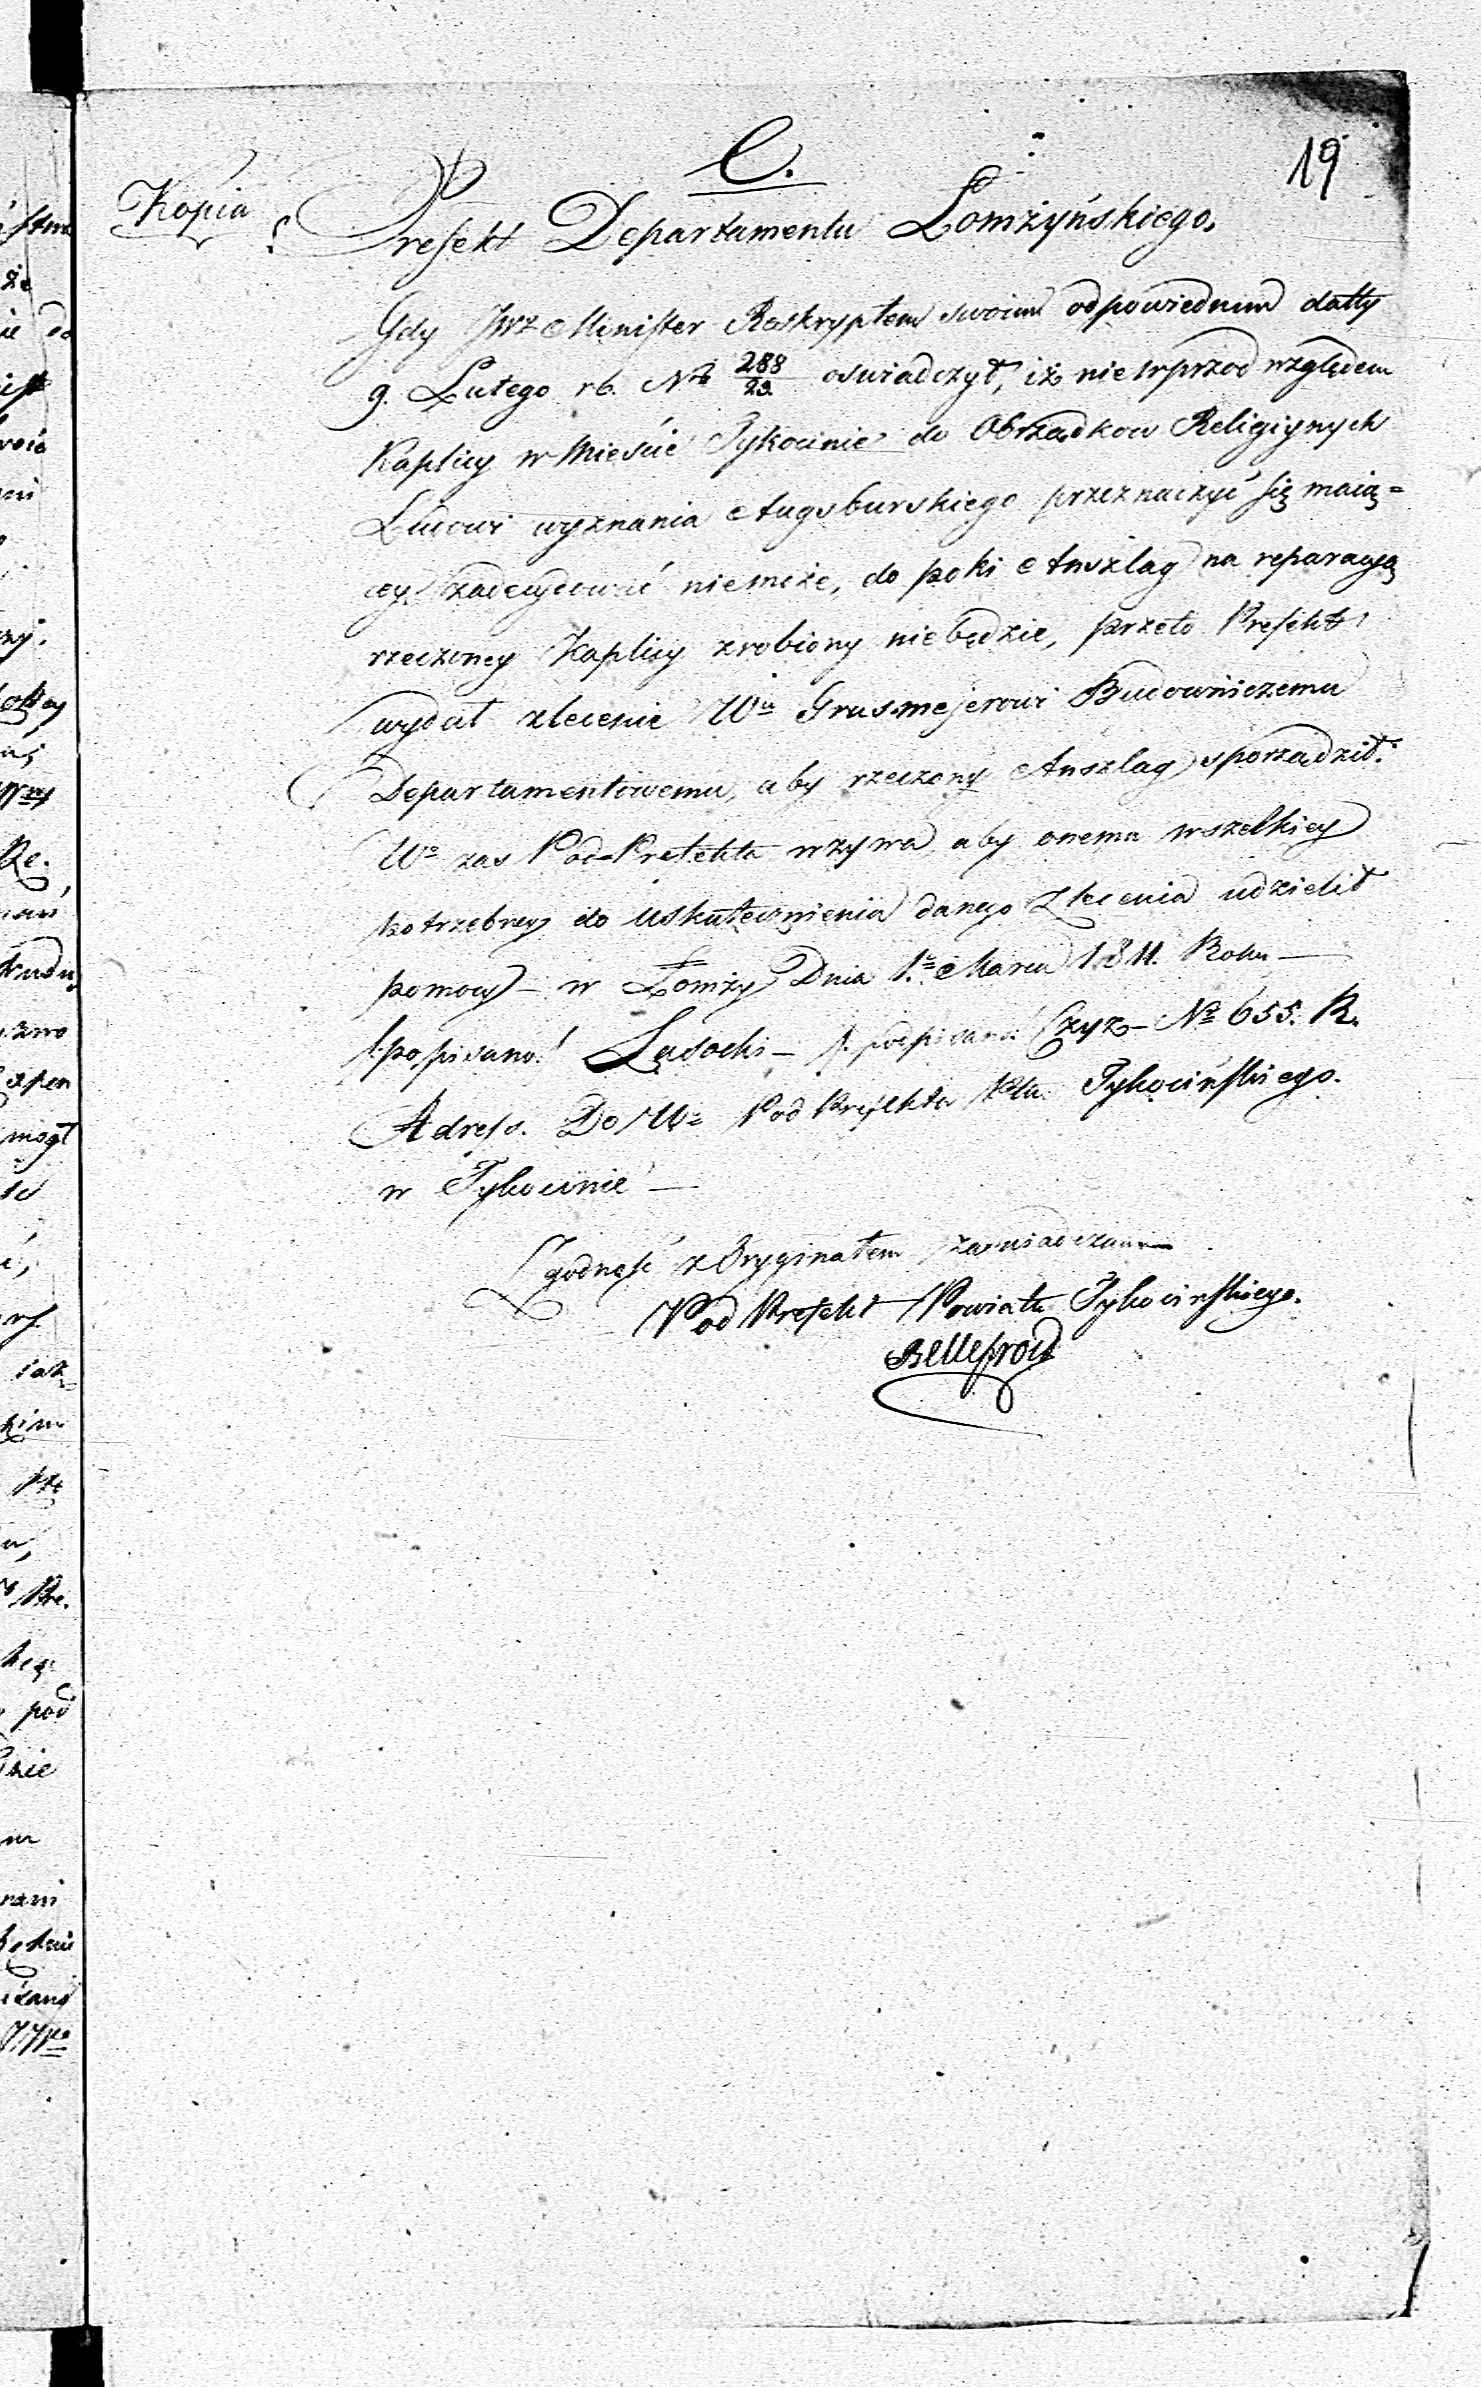 C.
19
Kopia
Prefekt Departamentu Łomżyńskiego.
Gdy JWz Minister Reskryptem swoim odpowiednim datty
9. Lutego rb. No 288/29. oswiadczył, iż nie wprzod względem
Kaplicy w Mieście Tykocinie do Obrządkow Religiynych
Ludowi wyznania Augsburskiego przeznaczyć się maią=
cey zadecydować niemoże, do poki Anszlag na reparacyą
rzeczoney Kaplicy zrobiony nie będzie, przeto Prefekt
wydał zlecenie Wu Grusmejerowi Budowniczemu
Departamentowemu, aby rzeczony Anszlag sporządził.
Wo zas Pod-Prefekta wzywa aby onemu wszelkiey
potrzebney do uskutecznienia danego Zlecenia udzielił
pomocy – w Łomży Dnia 1. Marca 1811. Roku –
/:popisano:/ Lasocki – /:podpisano: Czyz – No 655. R.
Adress. Do W Pod Prefekta Ptu. Tykocińskiego.
w Tykocinie –
Zgodność z Oryginałem zaswiadczam
Pod Prefekt Powiatu Tykocińskiego.
Bellefroid